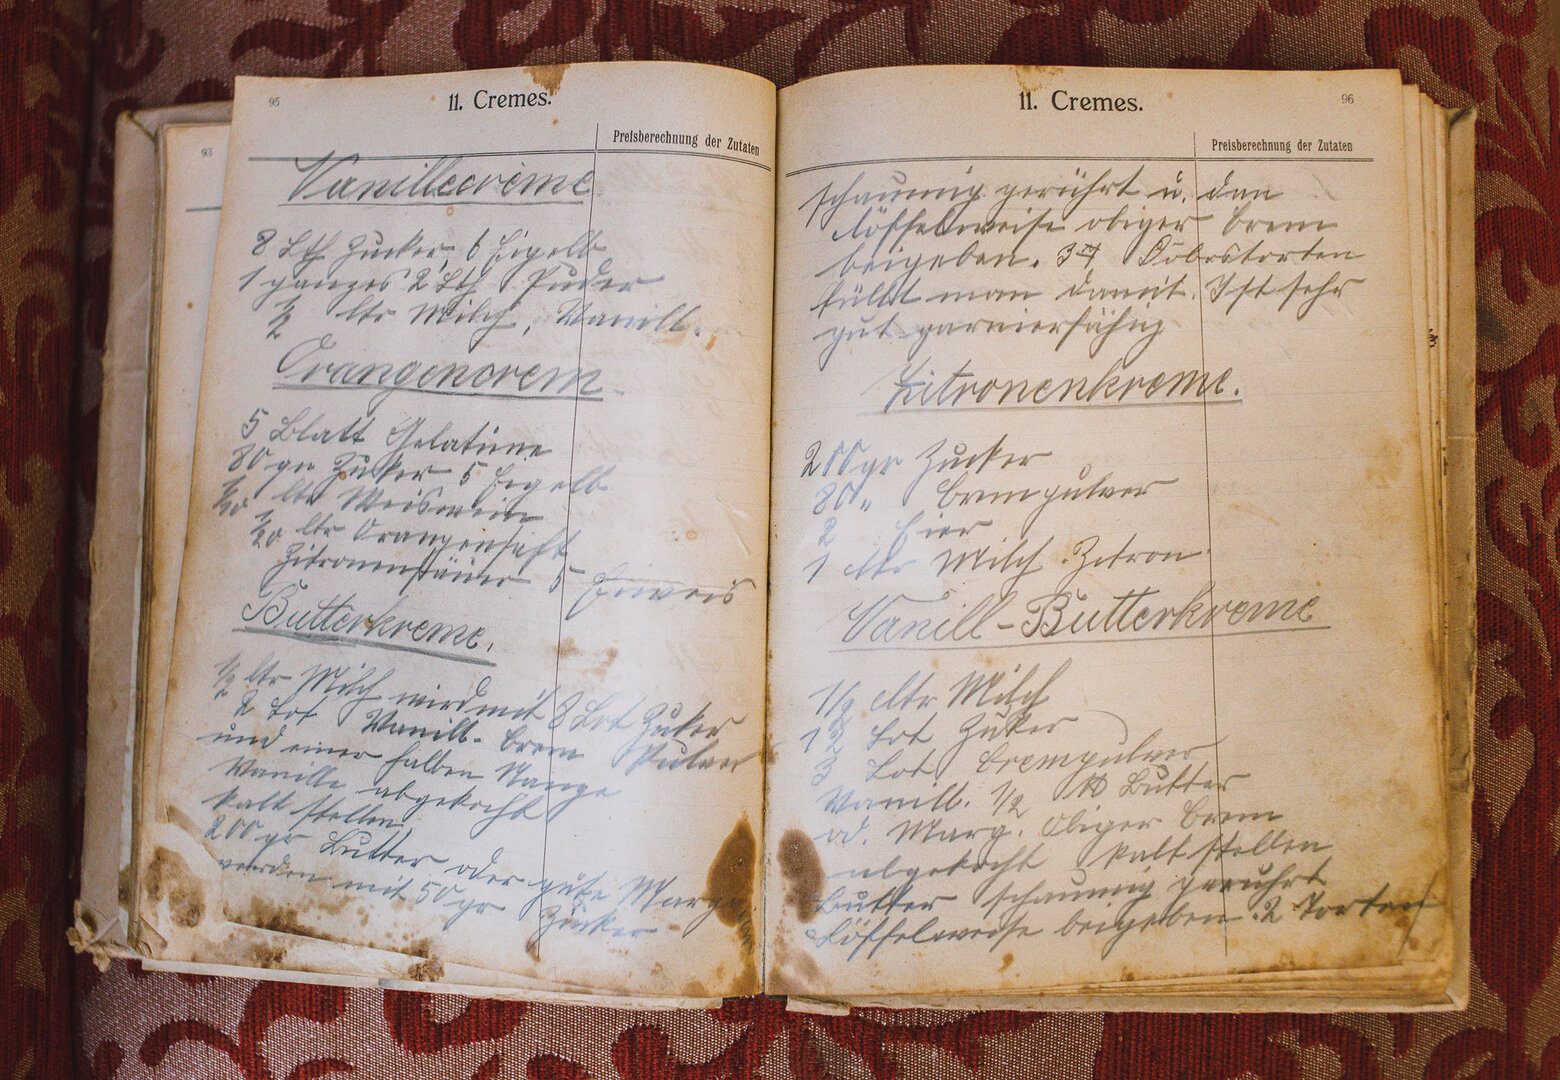 95
11. Cremes.
Preisberechnung der Zutaten
93
Vanillecrème
8 Lth Zucker 6 Eigelb
1 ganzes 2 Lth Puder
1/2 ltr Milch, Vanill.
Orangencrem
5 Blatt Gelatine
80 gr Zuker 5 Eigelb
1/10 ltr Weiswein
1/20 ltr Orangensaft
Zitronensäure 5 Eiweis
Butterkreme.
1/2 ltr Milch wird mit 8 Lot Zuker
2 Lot Vanill-Crem Pulver
und einer halben Stange
Vanille abgekocht
kalt stellen
200 gr Butter oder gute Marga
werden mit 50 gr Zucker
11. Cremes.
96
Preisberechnung der Zutaten
schaumig gerührt u. dan
löffelweise obiger Crem
beigeben. 3 Dobostorten
füllt man damit. Ist sehr
gut garnierfähig
Zitronenkreme.
200 gr Zucker
80 " Crempulver
2 Eier
1 ltr Milch Zitron
Vanill-Butterkreme
1/2 ltr Milch
12 Lot Zuker
3 Lot Crempulver
Vanill. 1/2 ℔ Butter
od. Marg. Obiger Crem
abgekocht kalt stellen
Butter schaumig gerührt
Löffelweise beigeben. 2 Torten